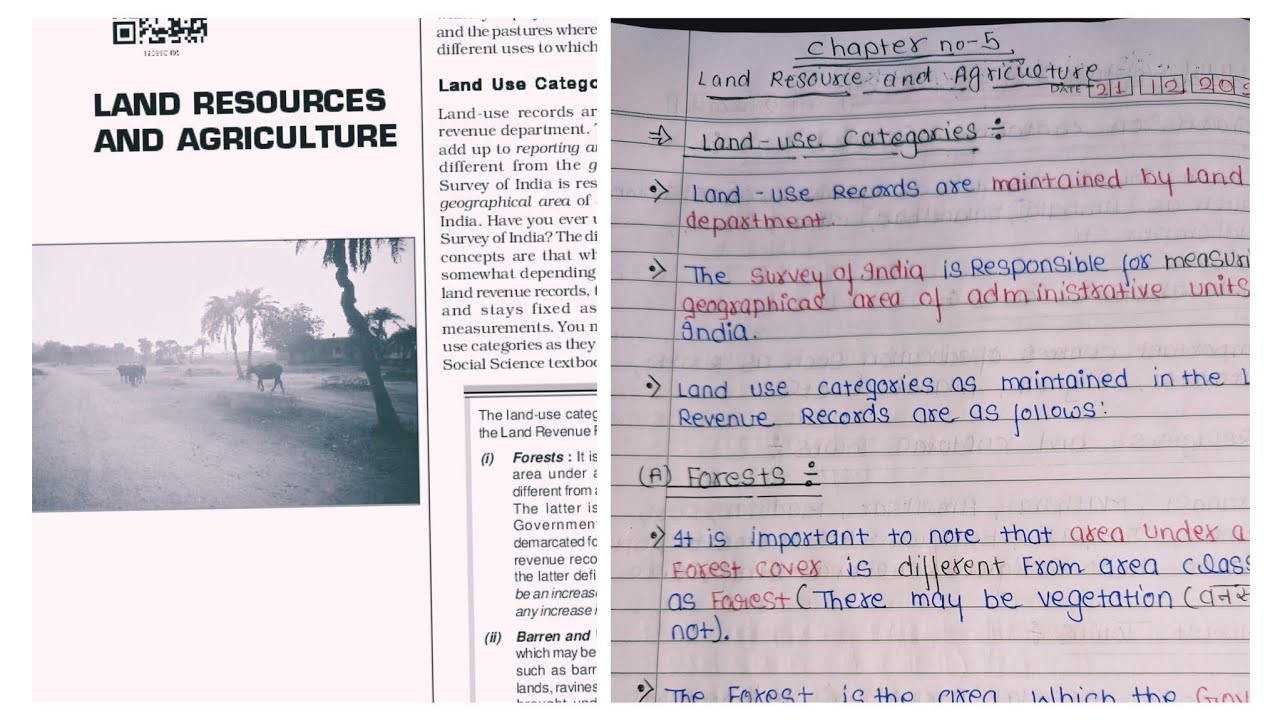 LAND RESOURCES
AND AGRICULTURE
and the pastures where
different uses to which
Land Use Catego
Land-use records ar
revenue department.
add up to reporting a
different from the g
Survey of India is res
geographical area of
India. Have you ever u
Survey of India? The di
concepts are that wh
somewhat depending
land revenue records,
and stays fixed as
measurements. You n
use categories as they
Social Science textboo
The land-use categ
the Land Revenue
(i) Forests : It is
area under a
different from
The latter is
Governmen
demarcated fo
revenue reco
the latter defi
be an increas
any increase i
(ii) Barren and
which may be
such as barr
lands, ravines
Chapter no-5
Land Resource and Agriculture
DATE 21 12 20
⇒ Land-use categories ÷
•) Land-use Records are maintained by Land
department.
•) The Survey of India is Responsible for measuri
geographical area of administrative units
India.
•) Land use categories as maintained in the L
Revenue Records are as follows:
(A) Forests ÷
•) It is important to note that area under a
Forest cover is different From area class
as Forest (There may be vegetation (वनस्
not).
•) The Forest is the area which the Gov